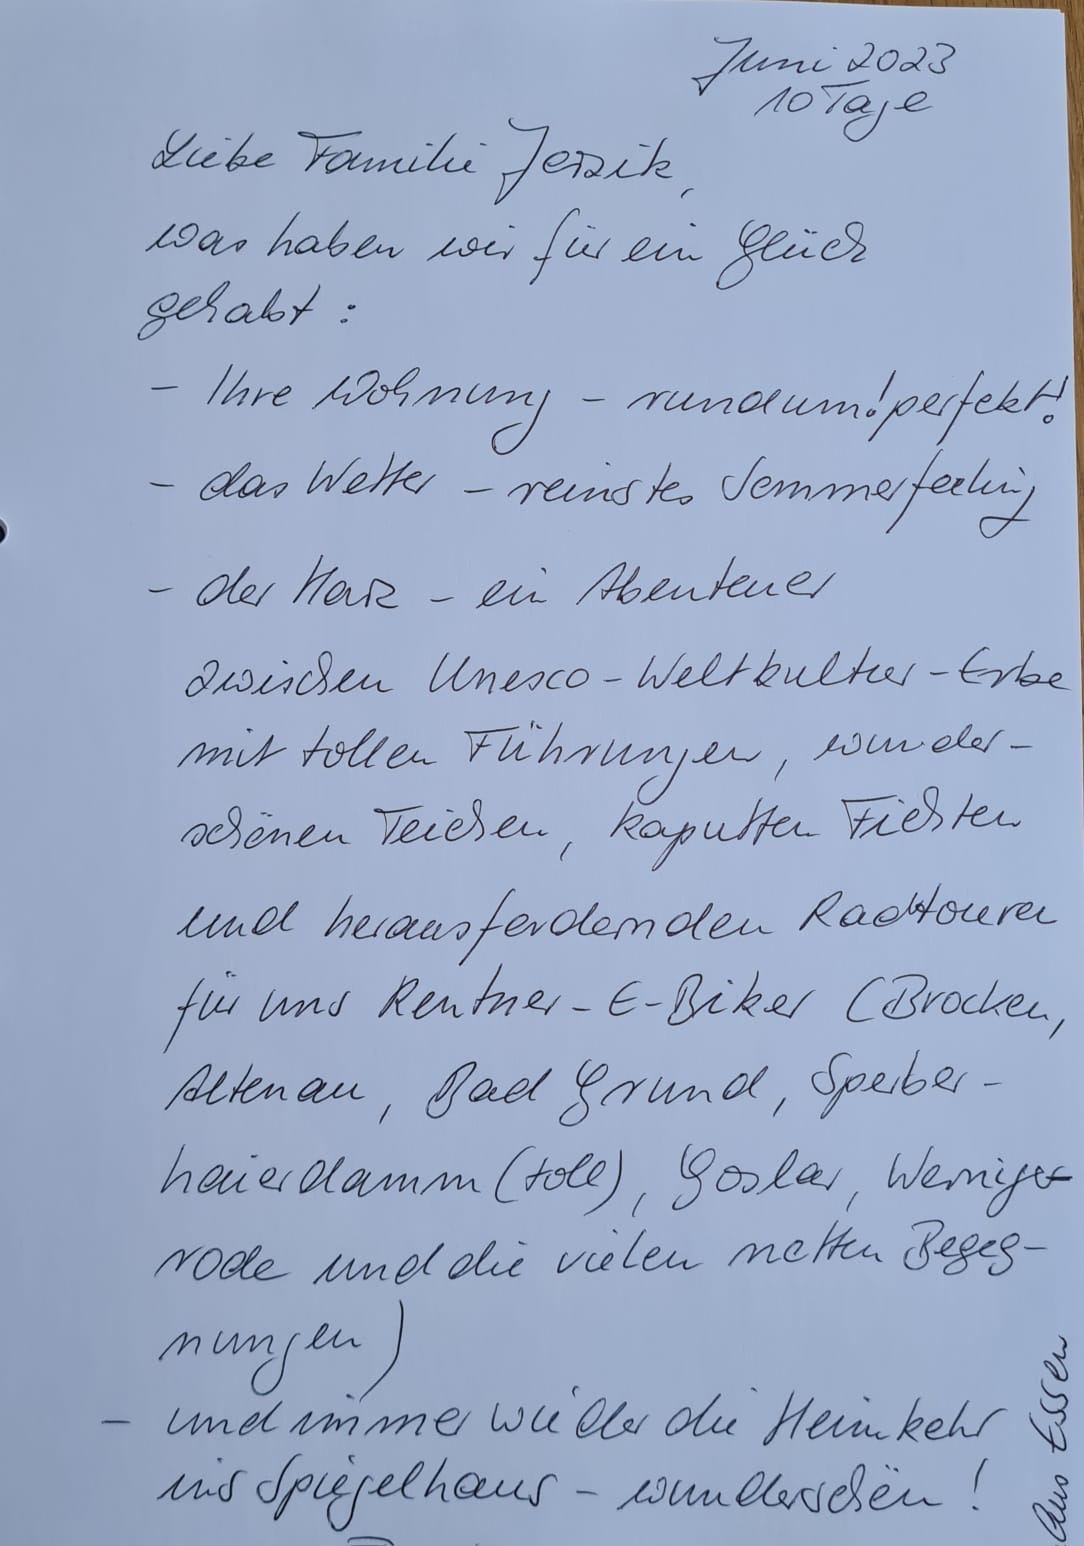 Juni 2023
10 Tage
Liebe Familie Jerzik,
was haben wir für ein Glück
gehabt :
- Ihre Wohnung - rundum! perfekt!
- das Wetter - reinstes Sommerfeeling
- der Harz - ein Abenteuer
zwischen Unesco-Weltkultur-Erbe
mit tollen Führungen, wunder-
schönen Teichen, kaputten Fichten
und herausfordernden Radtouren
für uns Rentner-E-Biker (Brocken,
Altenau, Bad Grund, Sperber-
haierdamm (toll), Goslar, Wernige-
rode und die vielen netten Begeg-
nungen)
- und immer wieder die Heimkehr
ins Spiegelhaus - wunderschön!
Aus Essen